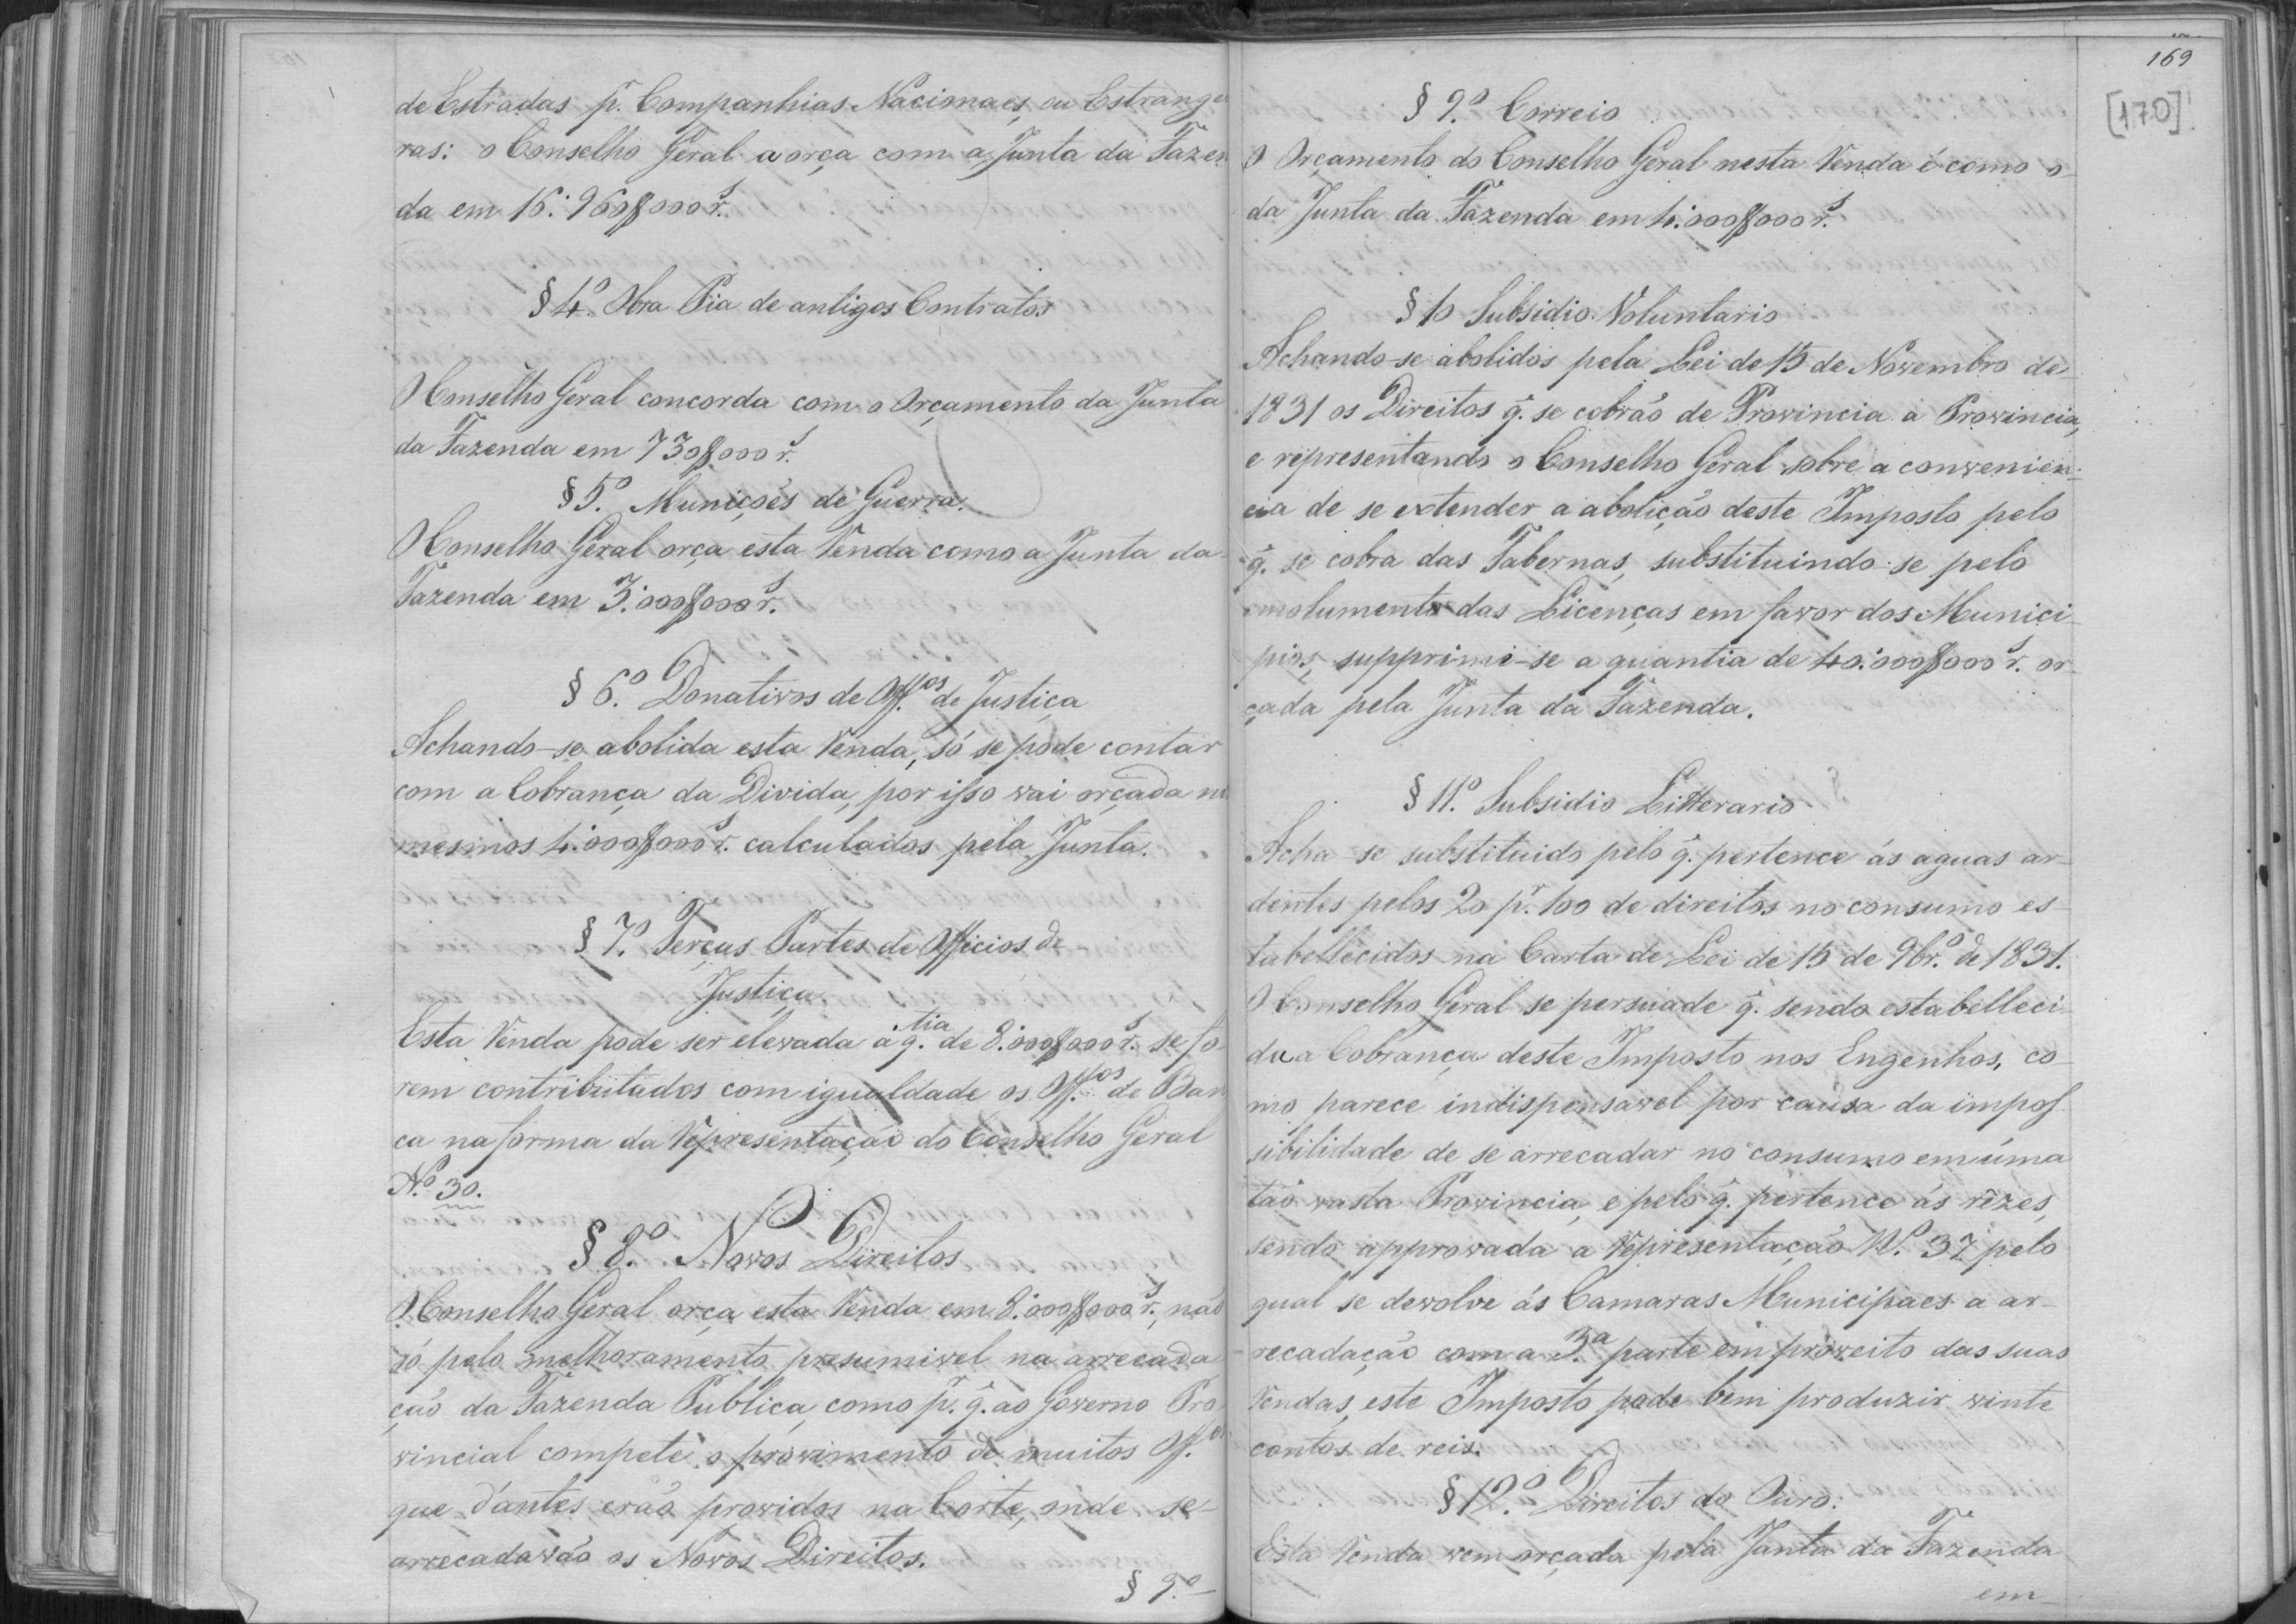 de Estradas pr. Companhias Nacionaes, ou Estrangei
ras: o Conselho Geral a orça com a Junta da Fazen
da em 16:960$000 rs.
§ 4.º Obra Pia de antigos Contratos
O Conselho Geral concorda com o Orçamento da Junta
da Fazenda em 730$000 rs.
§ 5.º Munições de Guerra.
O Conselho Geral orça esta Renda como a Junta da
Fazenda em 3:000$000 rs.
§ 6.º Donativos de Off.os de Justiça
Achando-se abolida esta Renda, só se póde contar
com a Cobrança da Divida, por isso vai orçada n
mesmos 4:000$000 rs. calculados pela Junta.
§ 7.º Terças Partes de Officios de
Justiça.
Esta Renda pode ser elevada á q.tia de 8:000$000 rs. se fo
rem contribuitados com igualdade os Off.os de Ban
ca na forma da Representação do Conselho Geral
N.º 30.
§ 8.º Novos Direitos
O Conselho Geral orça esta Renda em 8:000$000 rs., não
só pelo melhoramento presumivel na arrecada
ção da Fazenda Publica, como pr. q. ao Governo Pro
vincial compete o provimento de muitos Off.os
que d'antes erão providos na Corte, onde se
arrecadavão os Novos Direitos.
§ 9.º
169
[170]
§ 9.º Correio
O Orçamento do Conselho Geral nesta Renda é como o
da Junta da Fazenda em 4:000$000 rs.
§ 10 Subsidio Voluntario
Achando-se abolidos pela Lei de 15 de Novembro de
1831 os Direitos q. se cobrão de Provincia a Provincia,
e representando o Conselho Geral sobre a convenien
cia de se extender a abolição deste Imposto pelo
q. se cobra das Tabernas, substituindo-se pelo
emolumento das Licenças em favor dos Munici
pios, supprimi-se a quantia de 40:000$000 rs. or
çada pela Junta da Fazenda.
§ 11.º Subsidio Litterario
Acha-se substituido pelo q. pertence ás aguas ar
dentes pelos 20 pr. 100 de direitos no consumo es
tabellecidos na Carta de Lei de 15 de 9br.º de 1831.
O Conselho Geral se persuade q. sendo estabelleci
da a Cobrança deste Imposto nos Engenhos, co
mo parece indispensavel por causa da impos
sibilidade de se arrecadar no consumo em úma
tão vasta Provincia, e pelo q. pertence ás rêzes,
sendo approvada a Representação N.º 37 pelo
qual se devolve ás Camaras Municipaes a ar
recadação com a 3.ª parte em proveito das suas
Rendas, este Imposto pode bem produzir vinte
contos de reis.
§ 12.º Direitos do Ouro:
Esta Renda vem orçada pela Junta da Fazenda
em